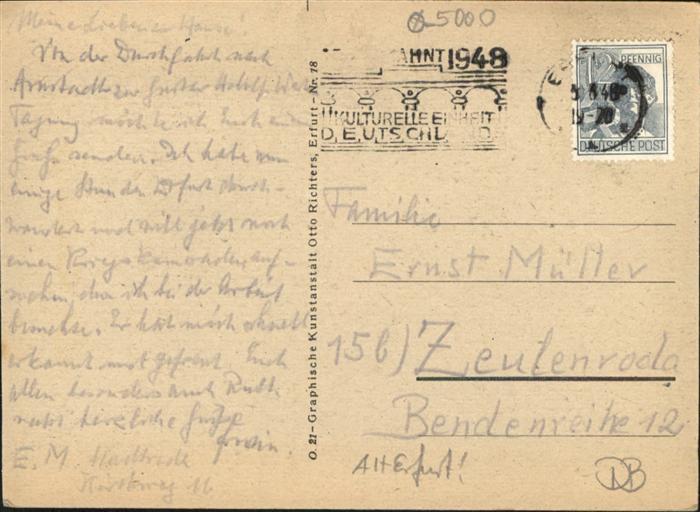 Meine Lieben zu Hause!
Von der Durchfahrt nach
Arnstadt zur Gustav Adolf
Tagung möchte ich Euch einen
Gruß senden. Ich habe nun
einige Stunden Erfurt durch-
wandert und will jetzt noch
einen Kriegskameraden auf-
suchen, den ich bei der Arbeit
besuchte. Er hat mich schnell
erkannt und gefreut. Euch
allen besonders auch Ruth
recht herzliche Grüße
Erwin.
E. M
16
O. 21 – Graphische Kunstanstalt Otto Richters, Erfurt – Nr. 78
5000
AHNT 1948
KULTURELLE EINHEIT
DEUTSCHLANDS
48
19-20
12 PFENNIG
DEUTSCHE POST
Familie
Ernst Müller
15b) Zeulenroda
Bendenreihe 12
Alt Erfurt!
DB